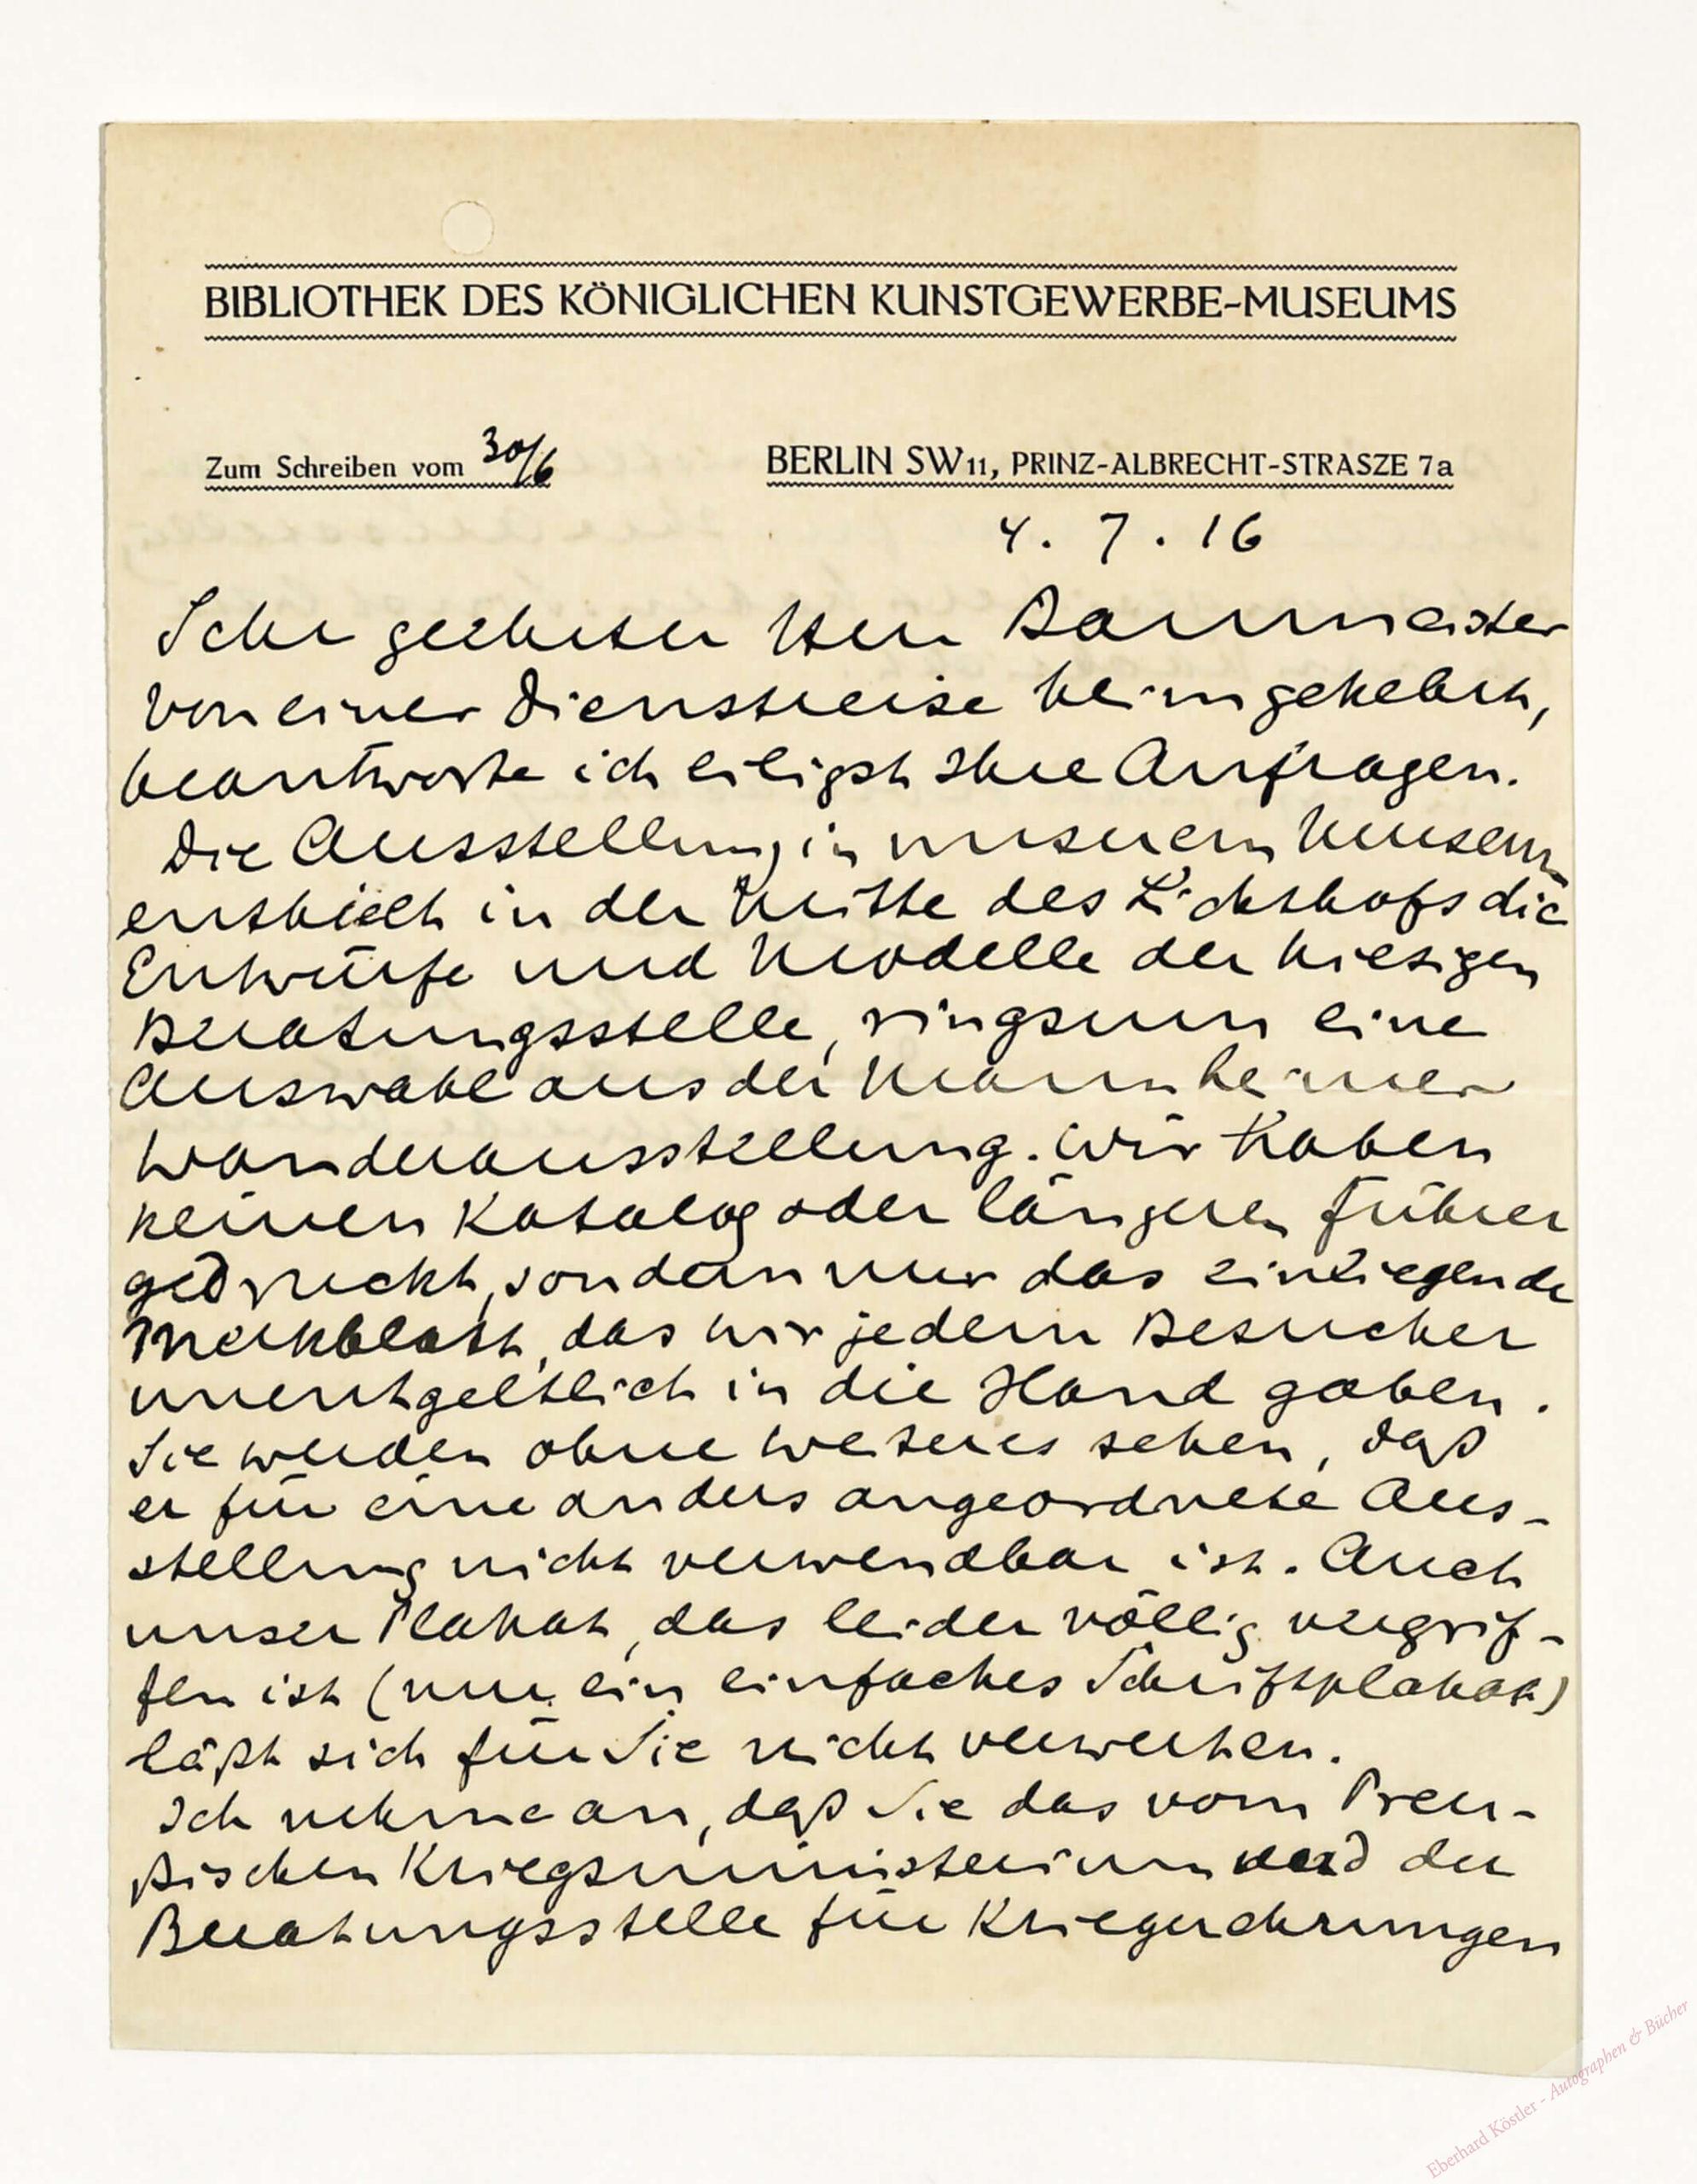 BIBLIOTHEK DES KÖNIGLICHEN KUNSTGEWERBE-MUSEUMS
Zum Schreiben vom 30/6
BERLIN SW11, PRINZ-ALBRECHT-STRASZE 7a
4. 7. 16
Sehr geehrter Herr Baurmeister
Von einer Dienstreise heimgekehrt,
beantworte ich eiligst Ihre Anfragen.
Die Ausstellung in unserem Museum
enthielt in der Mitte des Lichthofs die
Entwürfe und Modelle der hiesigen
Beratungsstelle, ringsum eine
Auswahl aus der Mannheimer
Wanderausstellung. Wir haben
keinen Katalog oder längeren Führer
gedruckt, sondern nur das einliegende
Merkblatt, das wir jedem Besucher
unentgeltlich in die Hand gaben.
Sie werden ohne weiteres sehen, daß
er für eine anders angeordnete Aus-
stellung nicht verwendbar ist. Auch
unser Plakat, das leider völlig vergrif-
fen ist (nur ein einfaches Schriftplakat)
läßt sich für Sie nicht verwerten.
Ich nehme an, daß Sie das vom Preu-
ßischen Kriegsministerium und der
Beratungsstelle für Kriegerehrungen
Eberhard Köstler - Autographen & Bücher